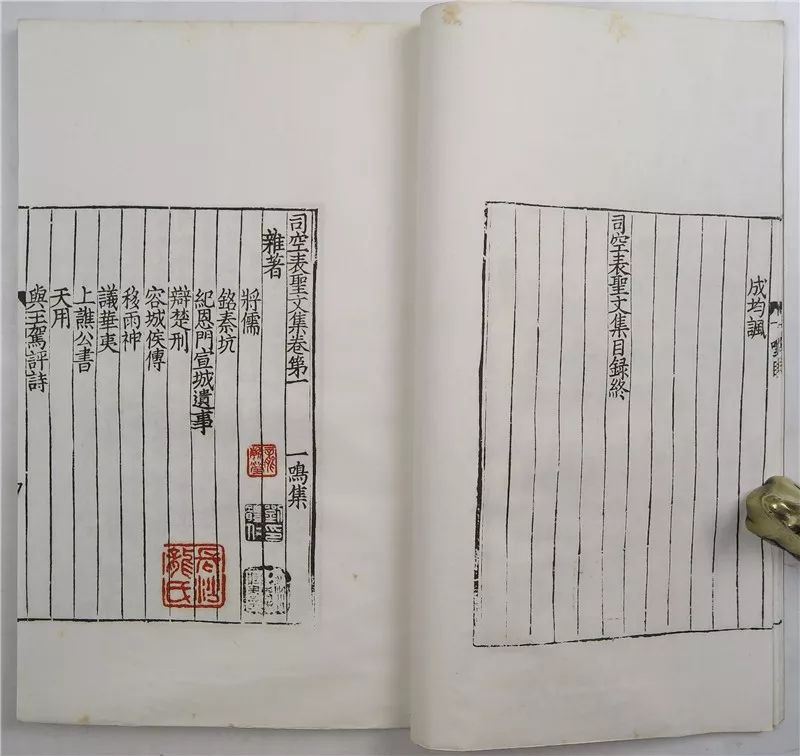 成均諷
司空表聖文集目録終
司空表聖文集卷第一 一鳴集
雜著
將儒
銘秦坑
紀恩門宣城遺事
辯楚刑
容城侯傳
移雨神
議華夷
上譙公書
天用
與王駕評詩
長沙龍氏